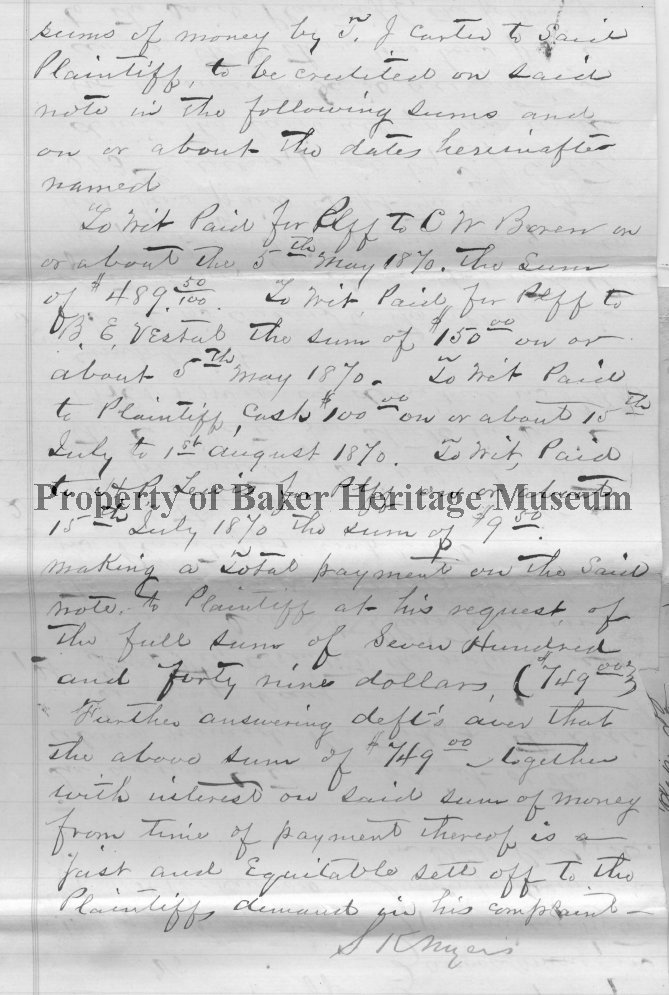 sums of money by T. J Carter to Said
Plaintiff, to be credited on said
note in the following sums and
on or about the dates hereinafter
named
To Wit Paid for Plff to C W Boren on
or about the 5th May 1870. the Sum
of $489 50/100. To Wit, Paid, for Plff to
B. E. Vestal the sum of $150 00 on or
about 5th May 1870. To Wit Paid
to Plaintiff, Cash $100 00 on or about 15th
July to 1st august 1870. To Wit, Paid
to H. P. Lewis for Plff on or about
Property of Baker Heritage Museum
15th July 1870 the sum of $9 50.
making a Total payment on the Said
note, to Plaintiff at his request, of
the full sum of Seven Hundred
and forty nine dollars, ($749 00)
Further answering deft's aver that
the above sum of $749 00 together
with interest on said sum of money
from time of payment thereof is a
just and Equitable sett off to the
Plaintiffs demand in his complaint
S K Myers